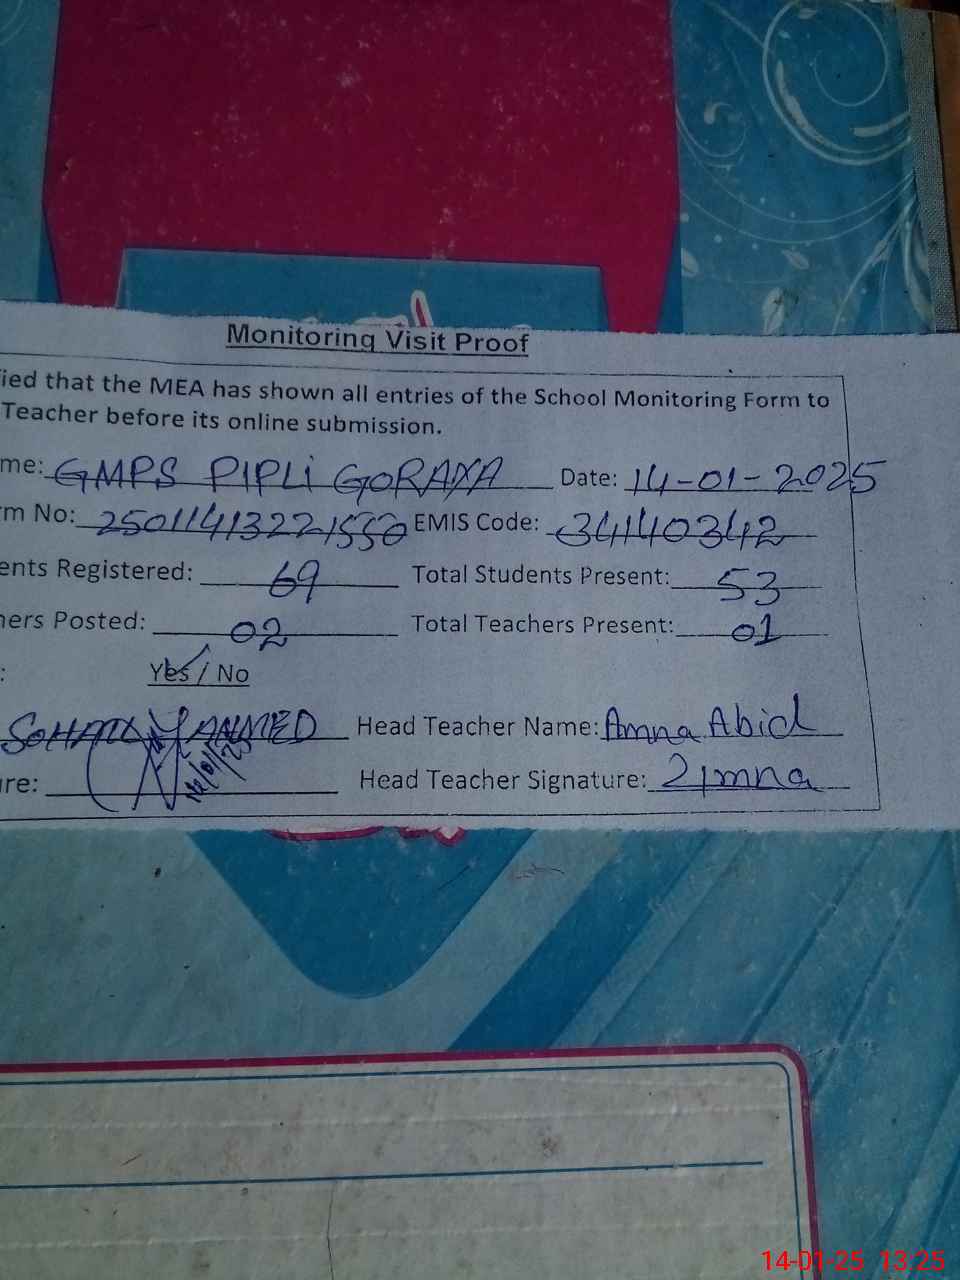 Monitoring Visit Proof
fied that the MEA has shown all entries of the School Monitoring Form to
Teacher before its online submission.
me: GMPS PIPLi GORAYA Date: 14-01-2025
rm No: 25011413221550 EMIS Code: 34140342
ents Registered: 69 Total Students Present: 53
ners Posted: 02 Total Teachers Present: 01
: Yes / No
AHMED Head Teacher Name: Amna Abid
14/01/25
ure: Head Teacher Signature: Amna
14-01-25 13:25